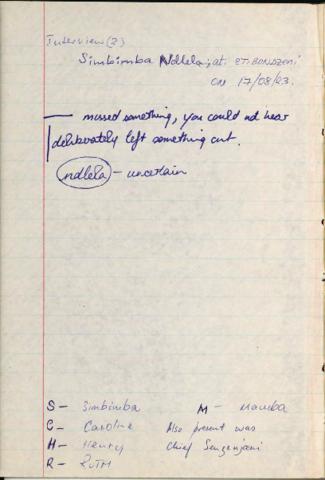 Interview (2)
Simbimba Ndlela; at: ETIBONDZENI
ON 17/08/83.
— missed something, you could not hear
deliberately left something out.
ndlela – uncertain
S – Simbimba M – Mamba
C – Caroline Also present was
H – Henry Chief Sengenjani
R – RUTH